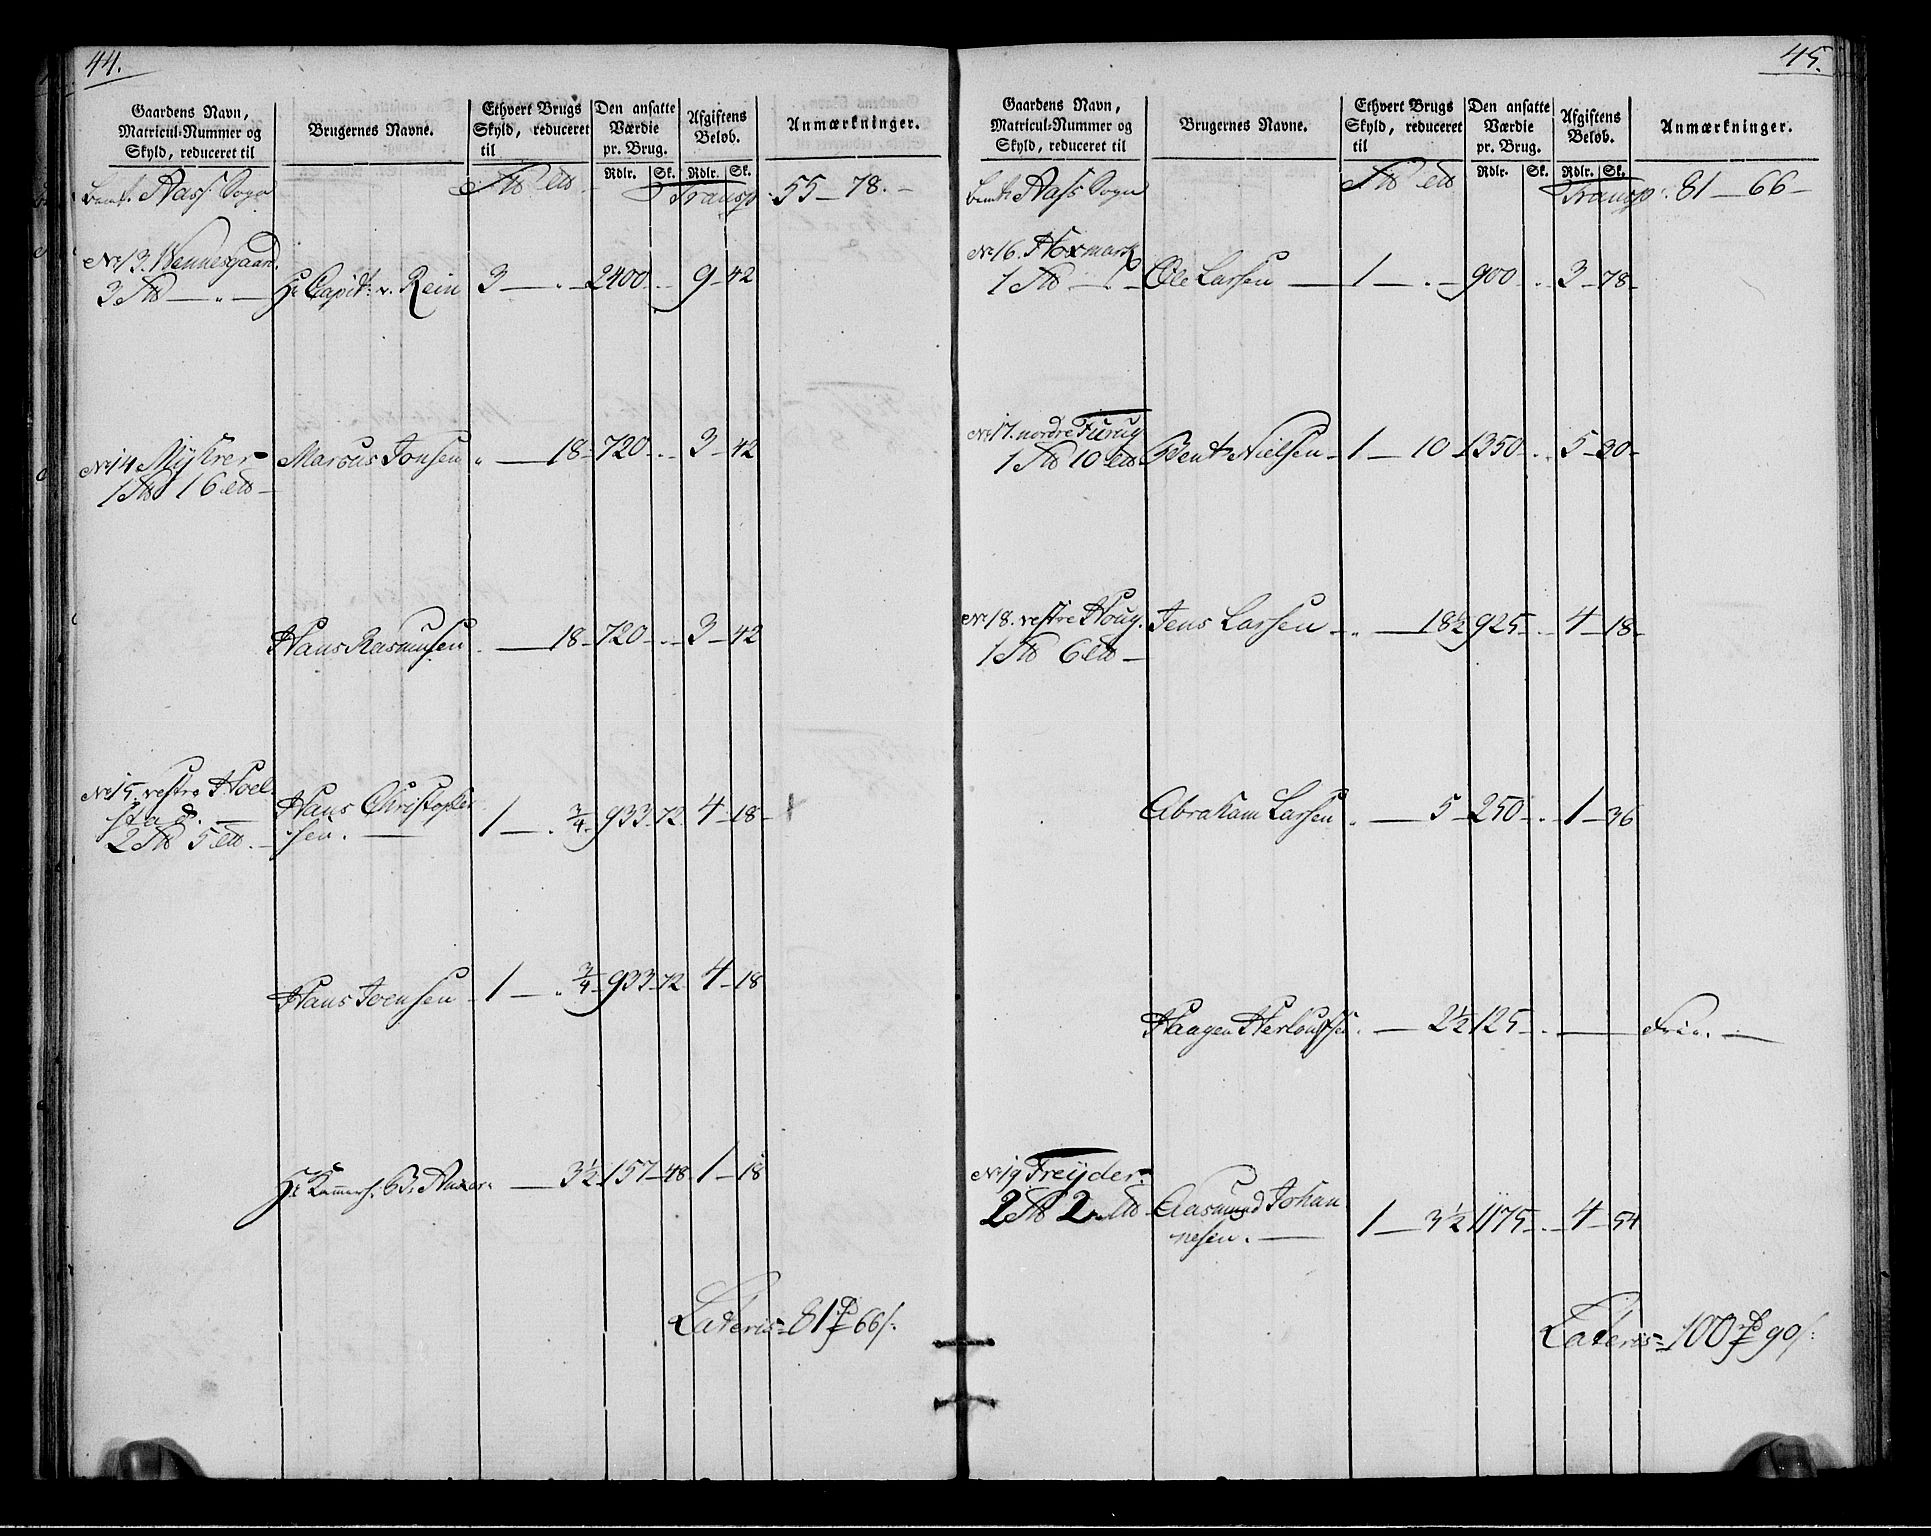 44.
Gaardens Navn,
Matricul-Nummer og
Skyld, reduceret til
Brugernes Navne.
Ethvert Brugs
Skyld, reduceret
til
Den ansatte
Værdie
pr. Brug.
Afgiftens
Beløb.
Anmærkninger.
Rdlr. Sk. Rdlr. Sk.
Aass Sogn Transp: 55 - 78. -
No 13. Wennesgaard.
3 - " - Hr Capit: v. Rein 3 - " - 2400 - " - 9 - 42
No 14 Mÿkrer
1 16 - Marcus Jonsen " - 18 - 720 - " - 3 - 42
Hans Rasmusen " - 18 - 720 - " - 3 - 42
No 15. vestre Hoel-
stad. Hans Christopher
2 5 - sen. 1 - " 3/4 - 933 - 72 4 - 18 -
Hans Joensen - 1 - " 3/4 - 933 - 72 4 - 18
Hr Kammerh: B: Ancker " - 3½ 157 - 48 - 1 - 18
Lateris = 81 66 s:
45.
Gaardens Navn,
Matricul-Nummer og
Skyld, reduceret til
Brugernes Navne.
Ethvert Brugs
Skyld, reduceret
til
Den ansatte
Værdie
pr. Brug.
Afgiftens
Beløb.
Anmærkninger.
Rdlr. Sk. Rdlr. Sk.
Aass Sogn Transp: 81 - 66 -
No 16. Hoxmark
1 - " - Ole Larsen - 1 - " - 900 - " - 3 - 78 -
No 17. nordre Furug
1 10 Bent Nielsen - 1 - 10 - 1350 - " - 5 - 30 -
No 18. vestre Houg. Jens Larsen - " - 18½ 925 - " - 4 - 18 -
1 6 -
Abraham Larsen " - 5 - 250 - " - 1 - 36
Haagen Herloufsen " - 2½ 125 - " - Frie. -
No 19 Freÿder
2 2 Aasmund Johan
nesen. - 1 - 3½ 1175 - " - 4 - 54
Lateris = 100 90 s: